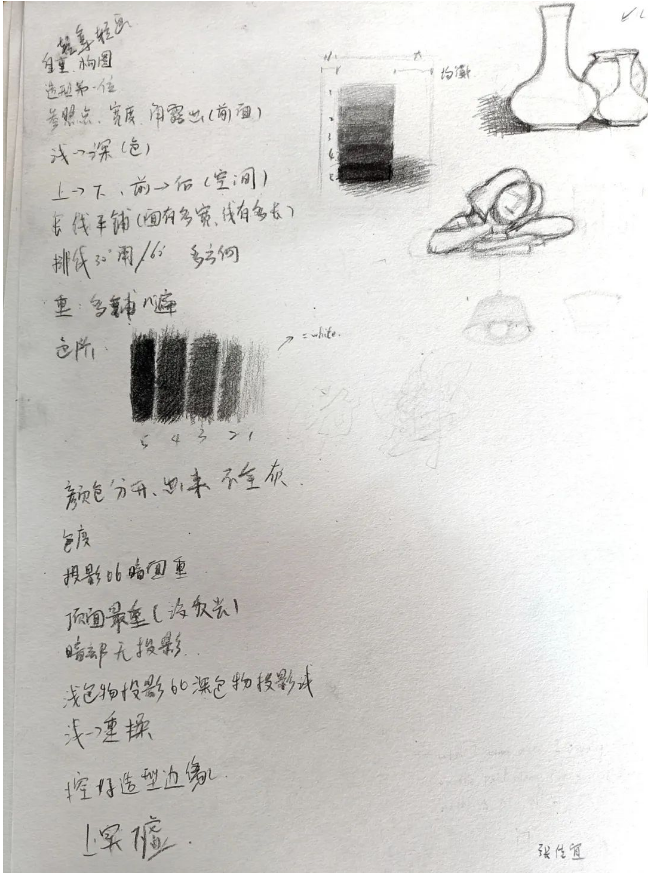 自重 构图
造型第一位
参照点、宽度、用露出(前面)
浅→深(色)
上→下、前→后(空间)
长线平铺(面有多宽、线有多长)
排线 用
重:多铺几遍
色阶:
= white.
5 4 3 2 1
颜色分开、出来 不全灰.
色度
投影bb暗面重
顶面最重(没
暗部无投影.
浅色物投影bb深色物投影浅
浅→重
控好造型边缘.
上深下
1
2
3
4
5
张佳宜